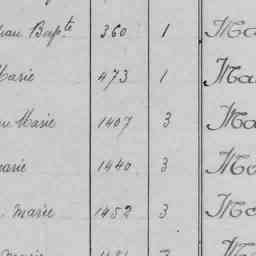 Bapte 360 1 Ma
Marie 473 1 Ma
Marie 1407 3 Ma
Marie 1440 3 Ma
Marie 1452 3 Ma